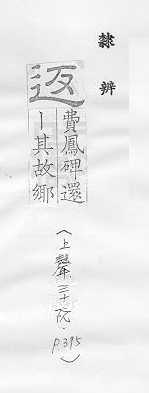 隸辨
返
費鳳碑還
丨其故鄉
(上聲三十阮.
P.395)